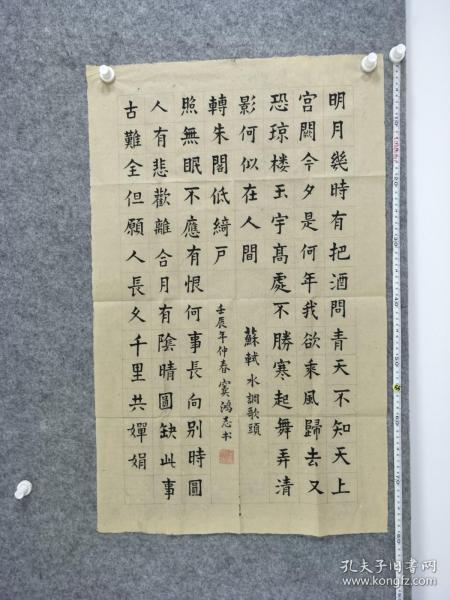 明月幾時有把酒問青天不知天上
宫闕今夕是何年我欲乘風歸去又
恐琼楼玉宇髙處不勝寒起舞弄清
影何似在人間
蘇軾 水調歌頭
轉朱閣低綺户
壬辰年仲春 窦鴻志书
照無眠不應有恨何事長向别時圓
人有悲歡離合月有陰晴圓缺此事
古難全但願人長久千里共嬋娟
孔夫子旧書网
www.kongfz.com